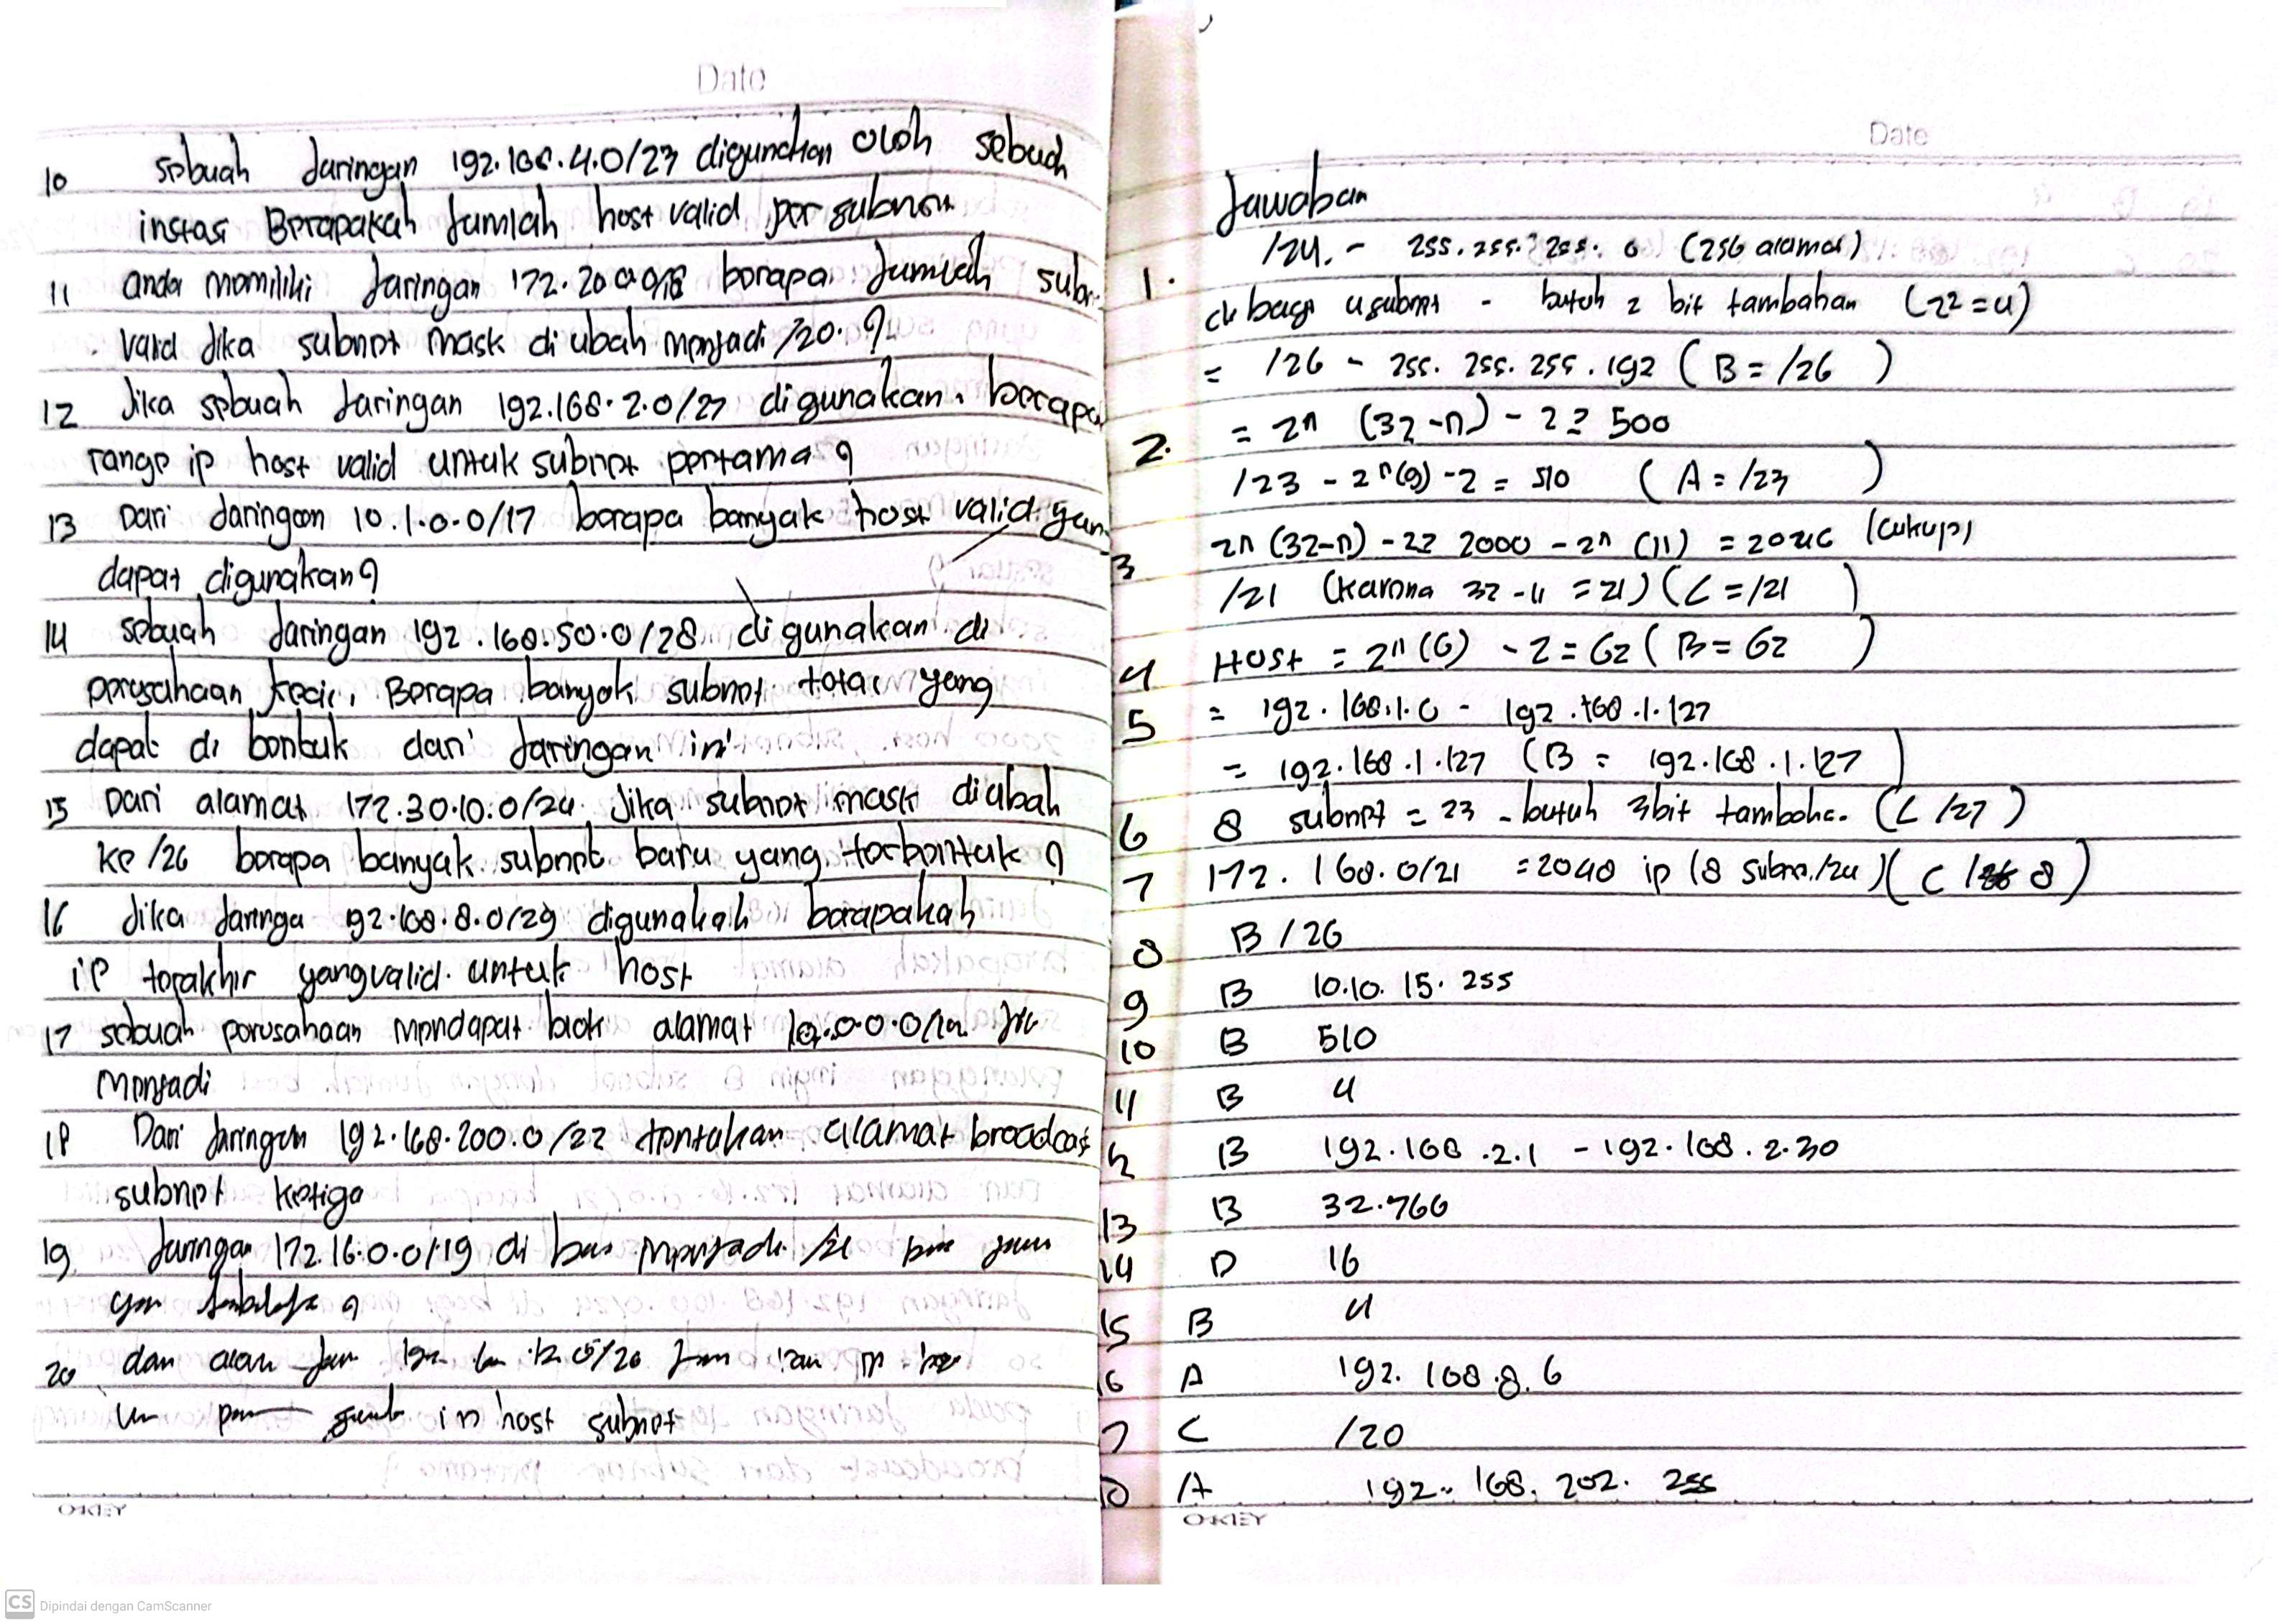 Date
10 Sebuah Jaringan 192.168.4.0/23 digunakan oleh sebuah
instasi Berapakah Jumlah host valid per subnet
11 anda memiliki Jaringan 172.20.0.0/18 berapa Jumlah subn
valid Jika subnet mask di ubah menjadi /20.?
12 Jika sebuah Jaringan 192.168.2.0/27 digunakan. berapa
range ip host valid untuk subnet pertama?
13 Dari Jaringan 10.1.0.0/17 berapa banyak host valid yan
dapat digunakan?
14 sebuah Jaringan 192.168.50.0/28 digunakan di
perusahaan kecil, Berapa banyak subnet total yang
dapat di bentuk dari Jaringan ini
15 Dari alamat 172.30.10.0/24. Jika subnet mask diubah
ke /26 berapa banyak subnet baru yang terbentuk?
16 Jika Jaringa 192.168.8.0/29 digunakah berapakah
iP terakhir yang valid. untuk host
17 sebuah perusahaan mendapat blok alamat 10.0.0.0/
menjadi
18 Dari Jaringan 192.168.200.0/22 tentukan alamat broadcas
subnet ketiga
19 Jaringan 172.16.0.0/19 di menjadi
?
20 dan
in host subnet
O-KEY
Date
Jawaban
1. /24. - 255.255.255.0 (256 alamat)
di bagi 4 subnet - butuh 2 bit tambahan (2^2=4)
= /26 - 255.255.255.192 (B = /26)
2. = 2^n (32-n) - 2 ≥ 500
/23 - 2^n(9) - 2 = 510 (A = /23)
3 2n (32-n) - 2≥ 2000 - 2^n (11) = 2046 (cukup)
/21 (karena 32 - 11 = 21) (C = /21)
4 Host = 2^n (6) - 2 = 62 (B = 62)
5 = 192.168.1.0 - 192.168.1.127
= 192.168.1.127 (B = 192.168.1.127)
6 8 subnet = 23 - butuh 3bit tambaha. (C /27)
7 172.168.0/21 = 2048 ip (8 subne./24) (C 8)
8 B /26
9 B 10.10.15.255
10 B 510
11 B 4
12 B 192.168.2.1 - 192.168.2.30
13 B 32.766
14 D 16
15 B 4
16 A 192.168.8.6
7 C /20
8 A 192.168.202.255
O-KEY
CS Dipindai dengan CamScanner